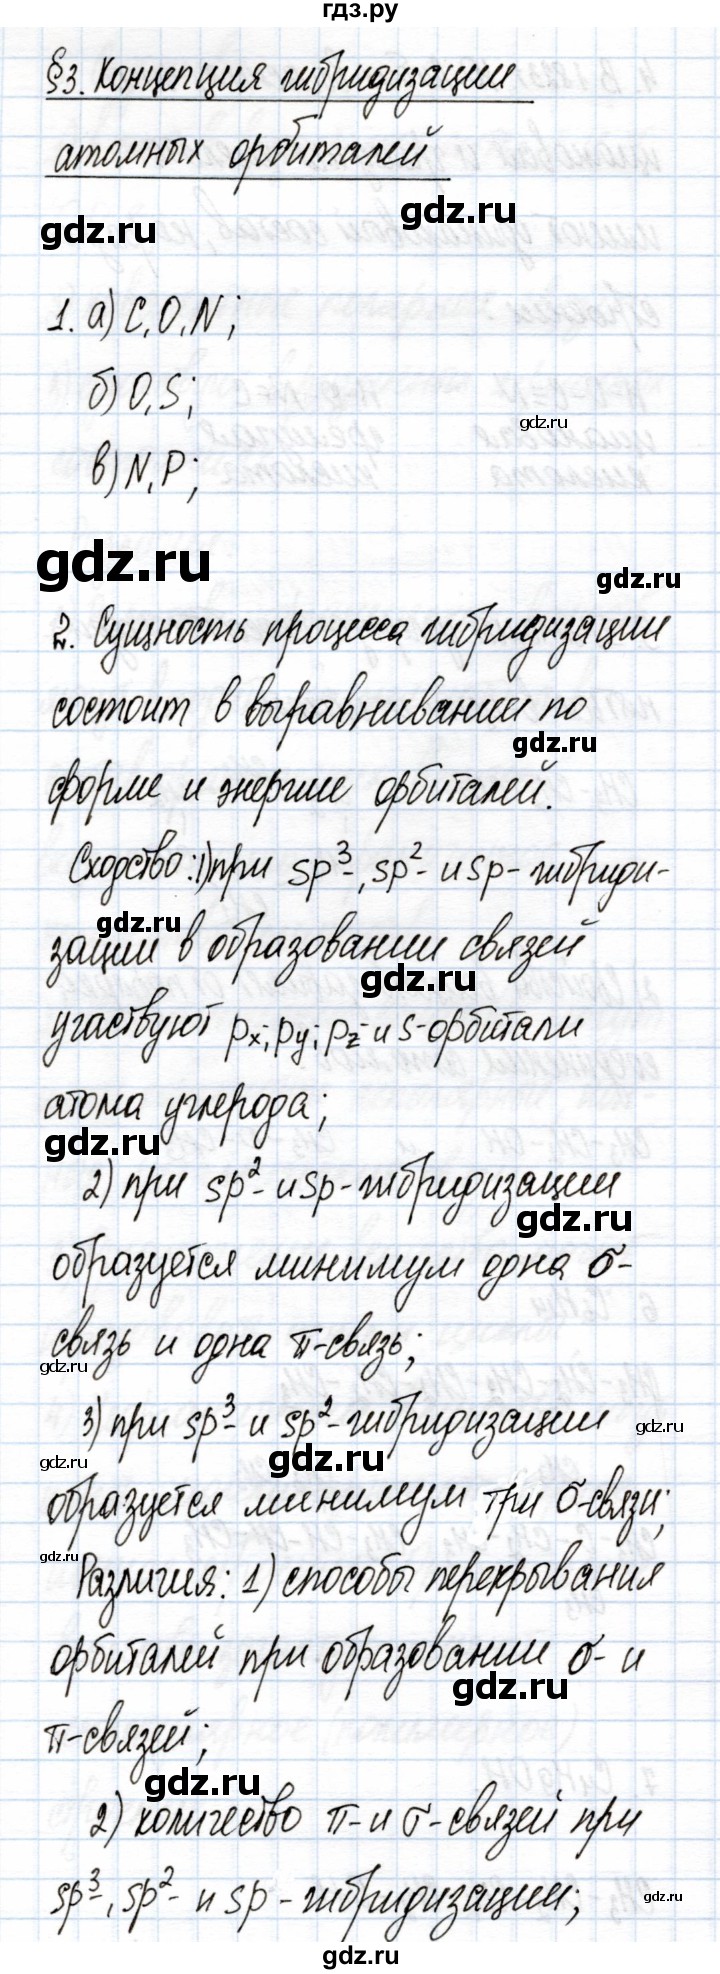 гдз.ру
§3. Концепция гибридизации
атомных орбиталей
gdz.ru
gdz.ru
1. а) C, O, N;
gdz.ru
б) O, S;
в) N, P;
gdz.ru
gdz.ru
2. Сущность процесса гибридизации
состоит в выравнивании по
gdz.ru
форме и энергии орбиталей.
Сходство: 1) при sp³-, sp²- и sp- гибриди-
gdz.ru
зации в образовании связей
gdz.ru
участвуют px-; py-; pz- и s-орбитали
атома углерода;
gdz.ru
2) при sp²- и sp-гибридизации
gdz.ru
образуется минимум одна σ-
связь и одна π-связь;
gdz.ru
3) при sp³- и sp²-гибридизации
gdz.ru
gdz.ru
gdz.ru
образуется минимум три σ-связи;
gdz.ru
Различия: 1) способы перекрывания
орбиталей при образовании σ- и
gdz.ru
π-связей;
gdz.ru
2) количество π- и σ-связей при
sp³-, sp²- и sp-гибридизации;
gdz.ru
gdz.ru